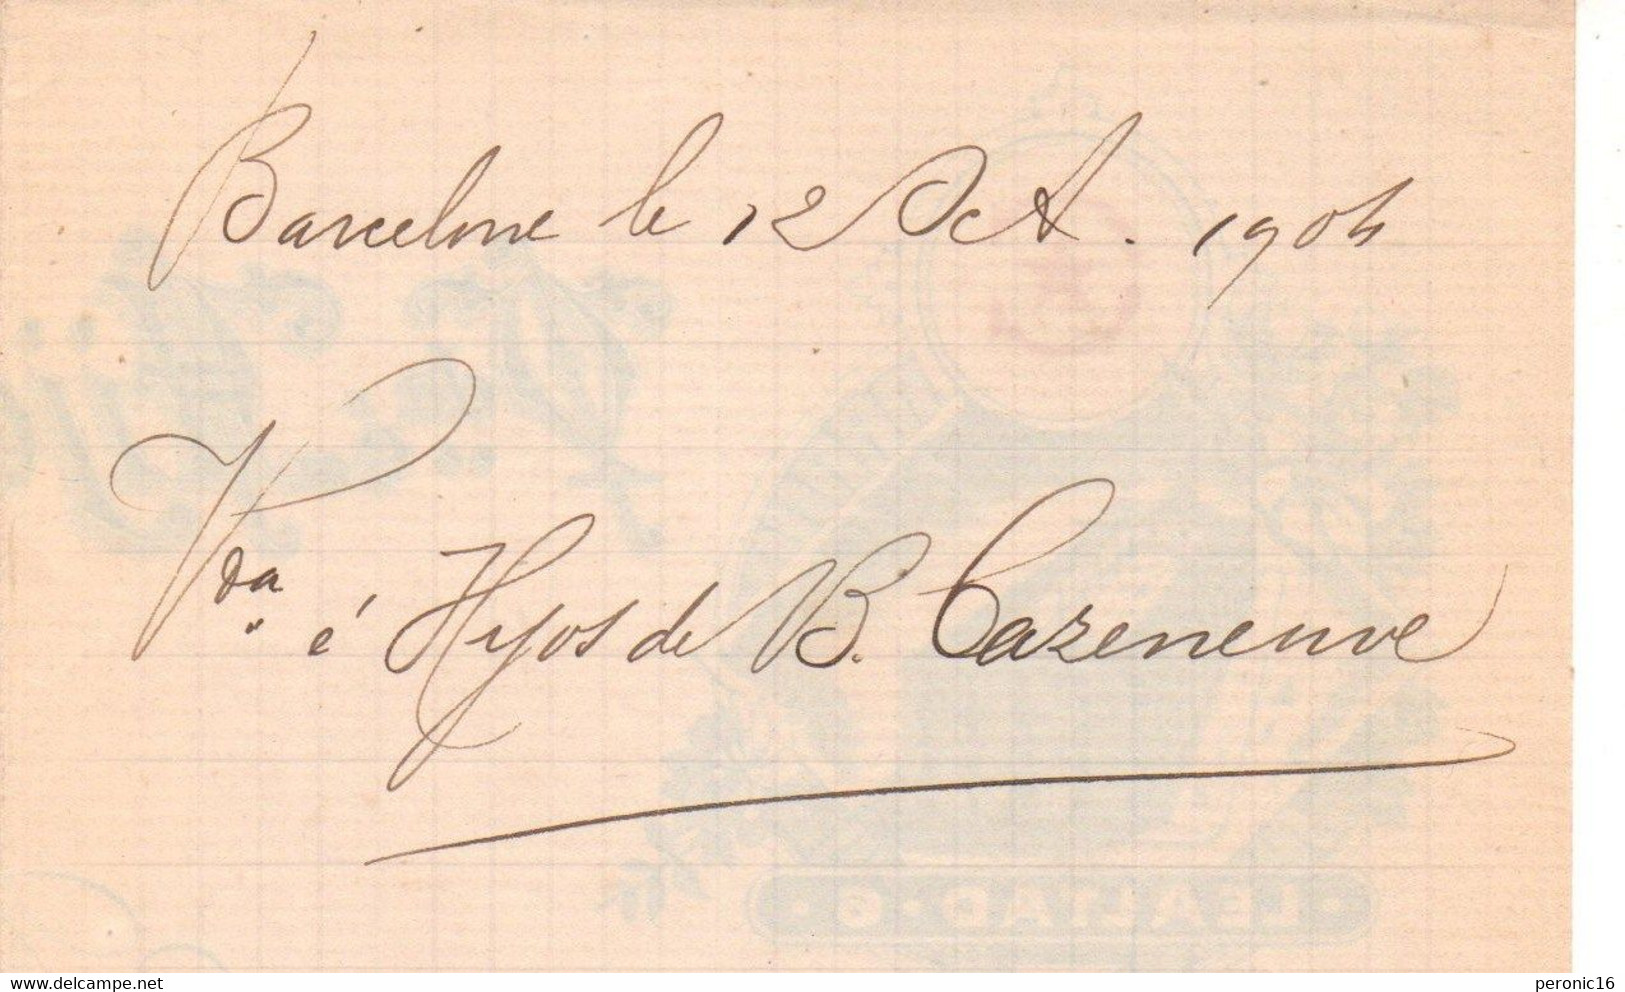 Barcelone le 12 Oct. 1904
Vda é Hijos de B. Cazeneuve
LEALTAD 6
www.delcampe.net
peronic16